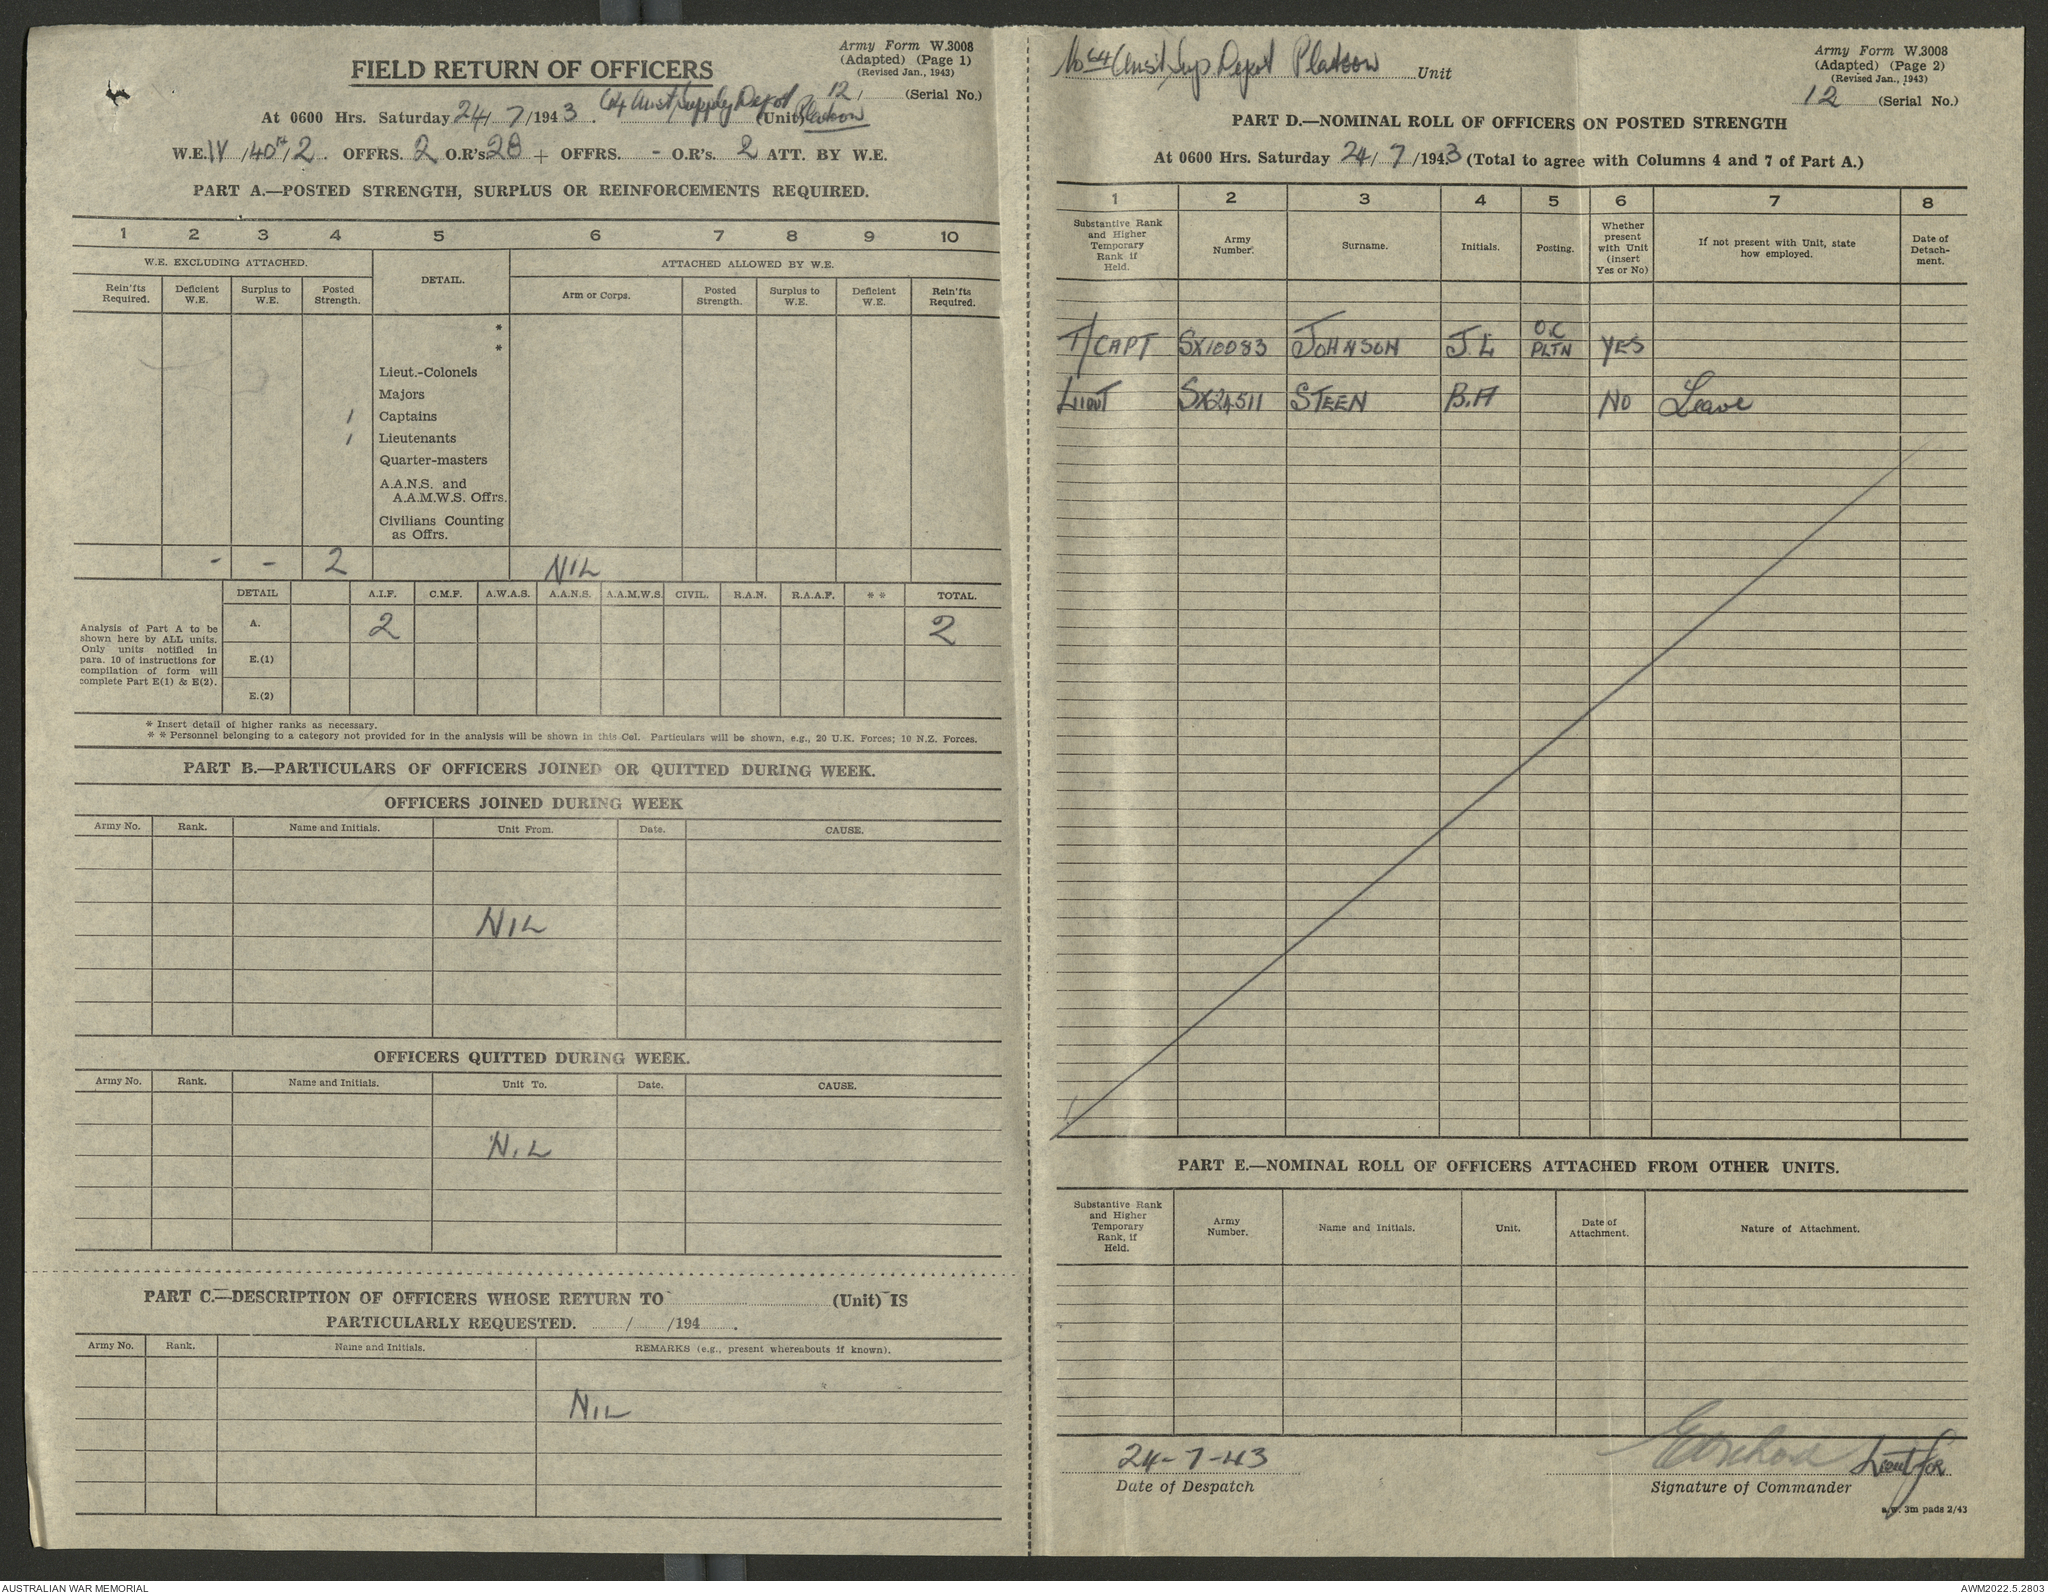 Army Form W.3008
(Adapted) (Page 1)
(Revised Jan., 1943)
FIELD RETURN OF OFFICERS
12 (Serial No.)
At 0600 Hrs. Saturday 24/7/1943. 64 Aust Supply Depot Platoon (Unit)
W.E. IV /40 /2. OFFRS. 2 O.R's 28 + OFFRS. - O.R's. 2 ATT. BY W.E.
PART A.—POSTED STRENGTH, SURPLUS OR REINFORCEMENTS REQUIRED.
1 2 3 4 5 6 7 8 9 10
W.E. EXCLUDING ATTACHED. DETAIL. ATTACHED ALLOWED BY W.E.
Rein'fts Required. Deficient W.E. Surplus to W.E. Posted Strength. Arm or Corps. Posted Strength. Surplus to W.E. Deficient W.E. Rein'fts Required.
*
*
Lieut.-Colonels
Majors
1 Captains
1 Lieutenants
Quarter-masters
A.A.N.S. and
A.A.M.W.S. Offrs.
Civilians Counting
as Offrs.
- - 2 NIL
DETAIL A.I.F. C.M.F. A.W.A.S. A.A.N.S. A.A.M.W.S. CIVIL. R.A.N. R.A.A.F. * * TOTAL.
Analysis of Part A to be
shown here by ALL units.
Only units notified in
para. 10 of instructions for
compilation of form will
complete Part E(1) & E(2).
A. 2 2
E.(1)
E.(2)
* Insert detail of higher ranks as necessary.
* * Personnel belonging to a category not provided for in the analysis will be shown in this Col. Particulars will be shown, e.g., 20 U.K. Forces; 10 N.Z. Forces.
PART B.—PARTICULARS OF OFFICERS JOINED OR QUITTED DURING WEEK.
OFFICERS JOINED DURING WEEK
Army No. Rank. Name and Initials. Unit From. Date. CAUSE.
NIL
OFFICERS QUITTED DURING WEEK.
Army No. Rank. Name and Initials. Unit To. Date. CAUSE.
NIL
PART C.—DESCRIPTION OF OFFICERS WHOSE RETURN TO (Unit) IS
PARTICULARLY REQUESTED. / /194 .
Army No. Rank. Name and Initials. REMARKS (e.g., present whereabouts if known).
NIL
No 64 Aust Sup. Depot Platoon Unit
Army Form W.3008
(Adapted) (Page 2)
(Revised Jan., 1943)
12 (Serial No.)
PART D.—NOMINAL ROLL OF OFFICERS ON POSTED STRENGTH
At 0600 Hrs. Saturday 24/7/1943 (Total to agree with Columns 4 and 7 of Part A.)
1 2 3 4 5 6 7 8
Substantive Rank and Higher Temporary Rank if Held. Army Number. Surname. Initials. Posting. Whether present with Unit (insert Yes or No) If not present with Unit, state how employed. Date of Detach-ment.
T/CAPT SX10083 JOHNSON J.L O.C PLTN YES
LIEUT SX24511 STEEN B.A NO Leave
PART E.—NOMINAL ROLL OF OFFICERS ATTACHED FROM OTHER UNITS.
Substantive Rank and Higher Temporary Rank, if Held. Army Number. Name and Initials. Unit. Date of Attachment. Nature of Attachment.
24-7-43 Lieut for
Date of Despatch Signature of Commander
a.w. 3m pads 2/43
AUSTRALIAN WAR MEMORIAL AWM2022.5.2803